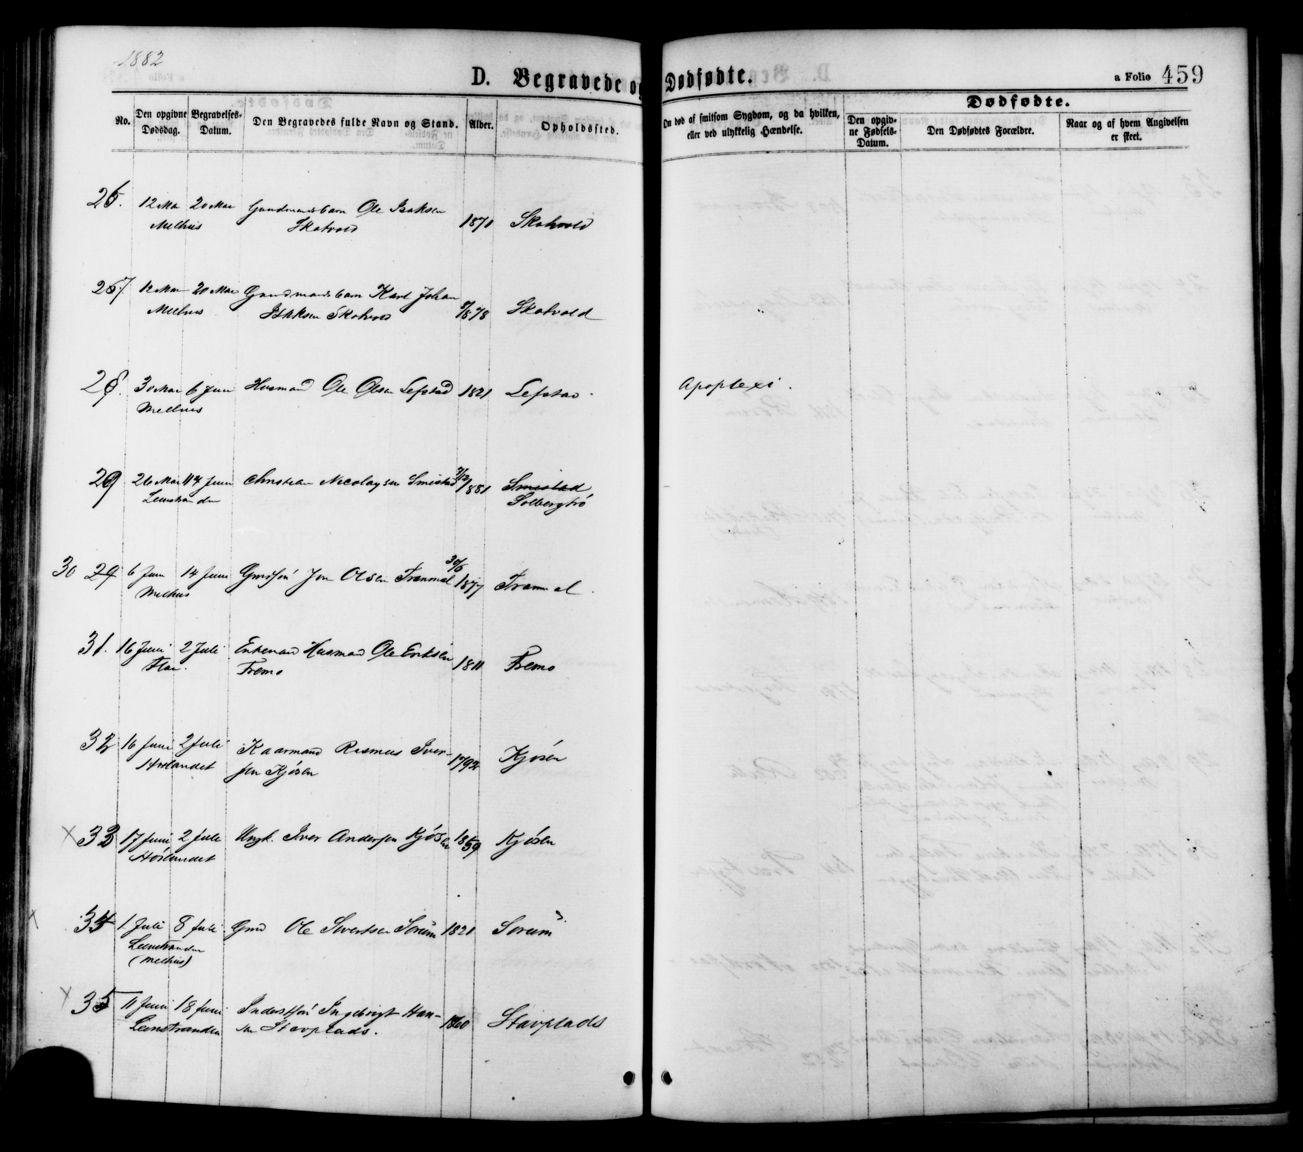 1882
D. Begravede og Dødfødte.
a Folio 459
No.
Den opgivne Dødsdag.
Begravelses-Datum.
Den Begravedes fulde Navn og Stand.
Alder.
Opholdssted.
Om død af smitsom Sygdom, og da hvilken, eller ved ulykkelig Hændelse.
Dødfødte.
Den opgivne Fødsels-Datum.
Den Dødfødtes Forældre.
Naar og af hvem Angivelsen er skeet.
12 Mai 20 Mai Gaardmandsbarn Ole Isaksen 1870 Skotvold
Melhus Skotvold
12 Mai 20 Mai Gaardmandsbarn Karl Johan 1878 Skotvold
Melhus Skotvold
30 Mai 6 Juni Husmand Ole Olsen Lefstad 1821 Lefstad Apoplexi.
Melhus
29 26 Mai 14 Juni Christian Nicolaysen Smistad 1881 Smistad
Leinstranden Solbergtrø
30 29 6 Juni 14 Juni Jon Olsen Tranmæl 1877 Tranmæl
Melhus
31. 16 Juni 2 Juli Enkemand Husmand Ole Eriksen 1811 Fremo
Fremo
32 16 Juni 2 Juli Kaarmand Rasmus Iver- 1792 Kjøsen
Høilandet sen Kjøsen
33 17 Juni 2 Juli Ungk. Iver Andersen Kjøsen 1859 Kjøsen
Høilandet
34 1 Juli 8 Juli Gmd Ole Sivertsen Sorum 1821 Sorum
Leinstranden
(Melhus)
35 11 Juni 18 Juni Ingebrigt Han- 1860 Stavplads
Leinstranden sen Stavplads.